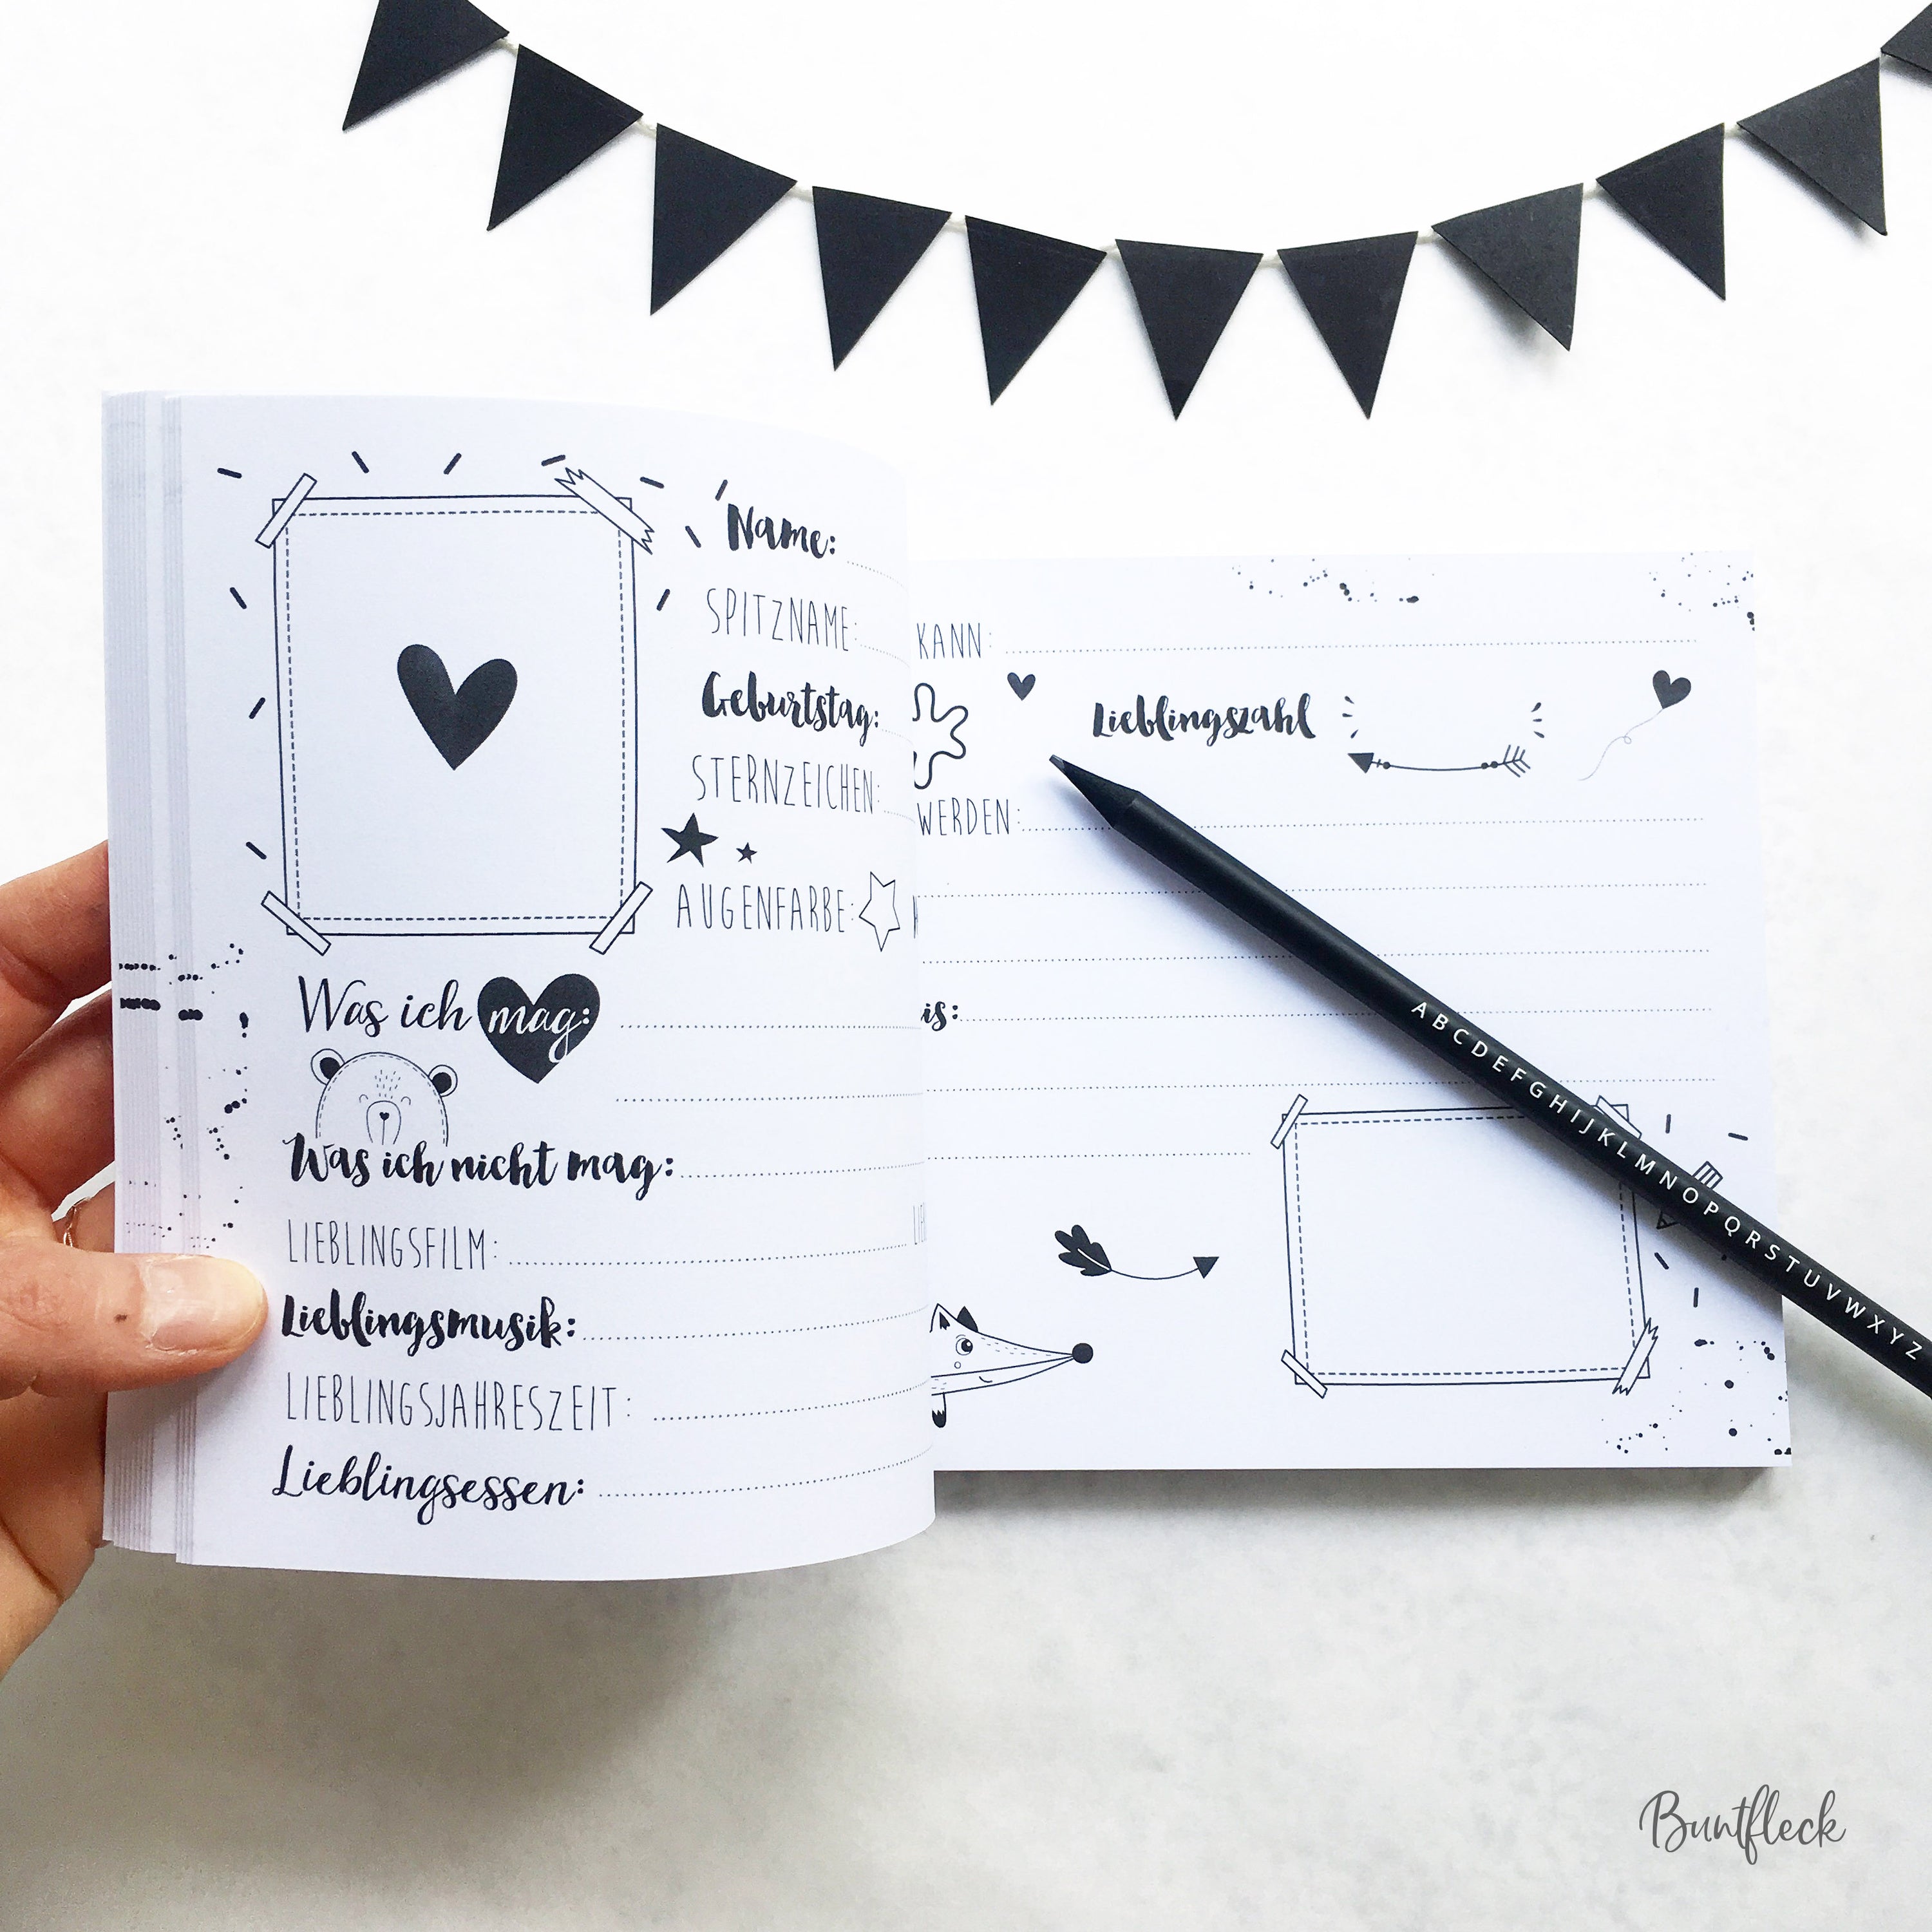 Name:
SPITZNAME:
Geburtstag:
STERNZEICHEN:
AUGENFARBE:
Was ich mag:
Was ich nicht mag:
LIEBLINGSFILM:
Lieblingsmusik:
LIEBLINGSJAHRESZEIT:
Lieblingsessen:
KANN:
Lieblingszahl
WERDEN:
is:
ABCDEFGHIJKLMNOPQRSTUVWXYZ
Buntfleck